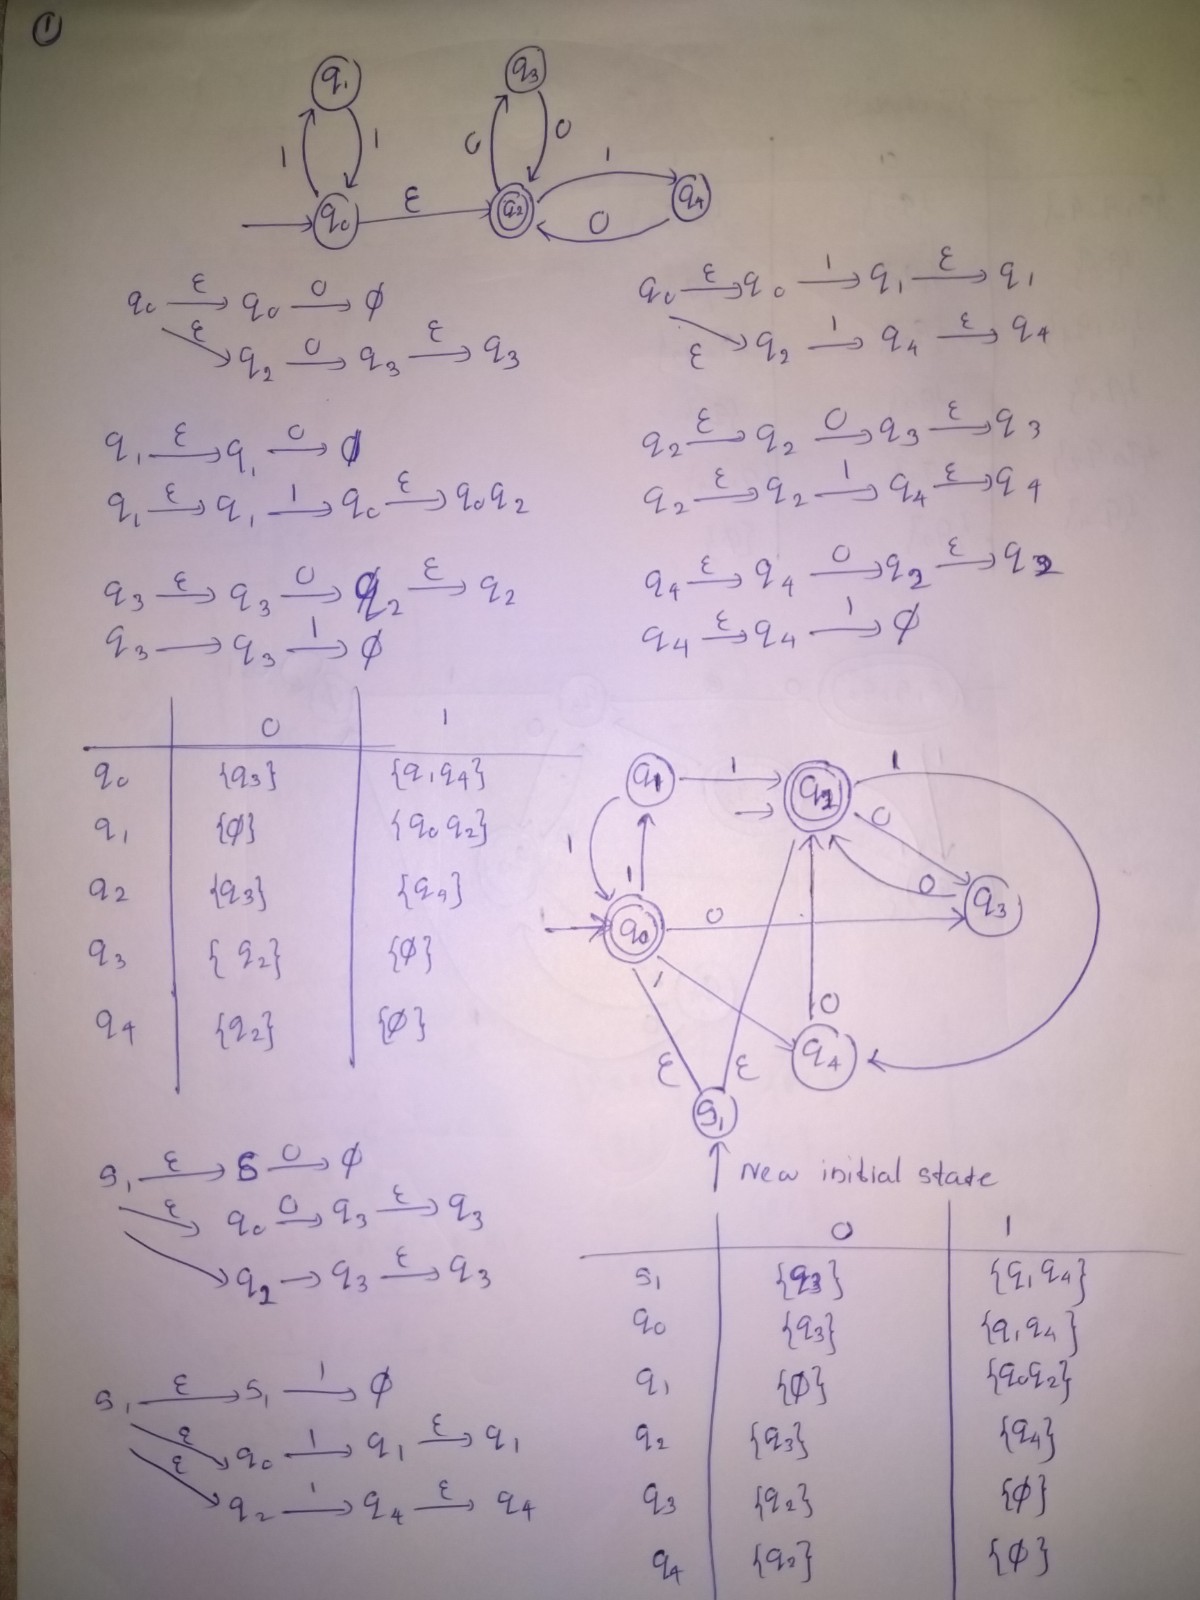 ①
q₁ q₃
1 1 0 0 1
q₀ ε q₂ 0 q₄
q₀ —ε→ q₀ —0→ ϕ
—ε→ q₂ —0→ q₃ —ε→ q₃
q₀ —ε→ q₀ —1→ q₁ —ε→ q₁
—ε→ q₂ —1→ q₄ —ε→ q₄
q₁ —ε→ q₁ —0→ ϕ
q₁ —ε→ q₁ —1→ q₀ —ε→ q₀q₂
q₂ —ε→ q₂ —0→ q₃ —ε→ q₃
q₂ —ε→ q₂ —1→ q₄ —ε→ q₄
q₃ —ε→ q₃ —0→ q₂ —ε→ q₂
q₃ → q₃ —1→ ϕ
q₄ —ε→ q₄ —0→ q₂ —ε→ q₂
q₄ —ε→ q₄ —1→ ϕ
0 1
q₀ {q₃} {q₁q₄}
q₁ {ϕ} {q₀q₂}
q₂ {q₃} {q₄}
q₃ {q₂} {ϕ}
q₄ {q₂} {ϕ}
q₁ 1 q₂ 1
1 1 0 0 q₃
q₀ 0
1 0
ε ε q₄
S₁
New initial state
S₁ —ε→ S —0→ ϕ
—ε→ q₀ —0→ q₃ —ε→ q₃
→ q₂ → q₃ —ε→ q₃
S₁ —ε→ S₁ —1→ ϕ
—ε→ q₀ —1→ q₁ —ε→ q₁
—ε→ q₂ —1→ q₄ —ε→ q₄
0 1
S₁ {q₃} {q₁q₄}
q₀ {q₃} {q₁q₄}
q₁ {ϕ} {q₀q₂}
q₂ {q₃} {q₄}
q₃ {q₂} {ϕ}
q₄ {q₂} {ϕ}